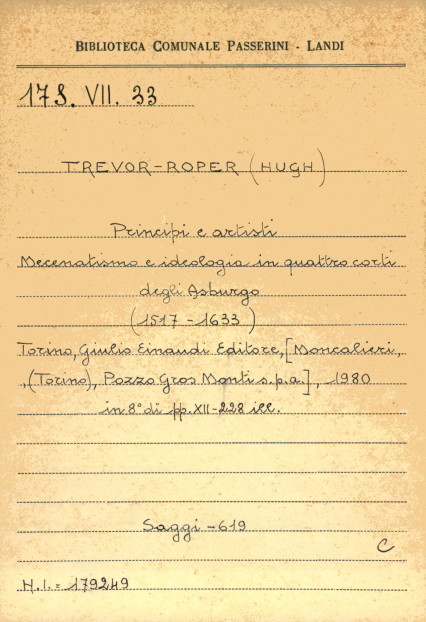 BIBLIOTECA COMUNALE PASSERINI - LANDI
17S. VII. 33
TREVOR-ROPER (HUGH)
Principi e artisti
Mecenatismo e ideologia in quattro corti
degli Asburgo
(1517-1633)
Torino, Giulio Einaudi Editore, [Moncalieri,
, (Torino), Pozzo Gros Monti s.p.a.], 1980
in 8° di pp. XII-228 ill.
Saggi - 619
C
N.I. = 179249